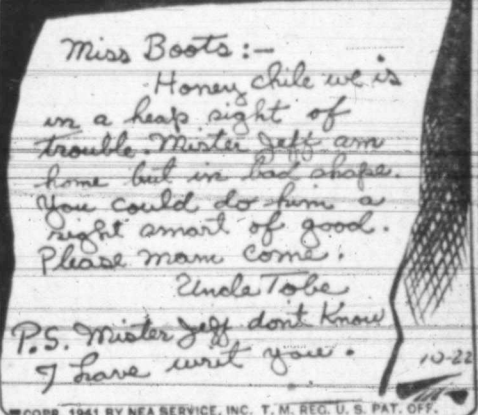 Miss Boots:—
Honey chile we is
in a heap sight of
trouble. Mister Jeff am
home but in bad shape.
You could do him a
right smart of good.
Please mam come.
Uncle Tobe
P.S. Mister Jeff dont Know
I have writ you.
10-22
COPR. 1941 BY NEA SERVICE, INC. T. M. REG. U. S. PAT. OFF.